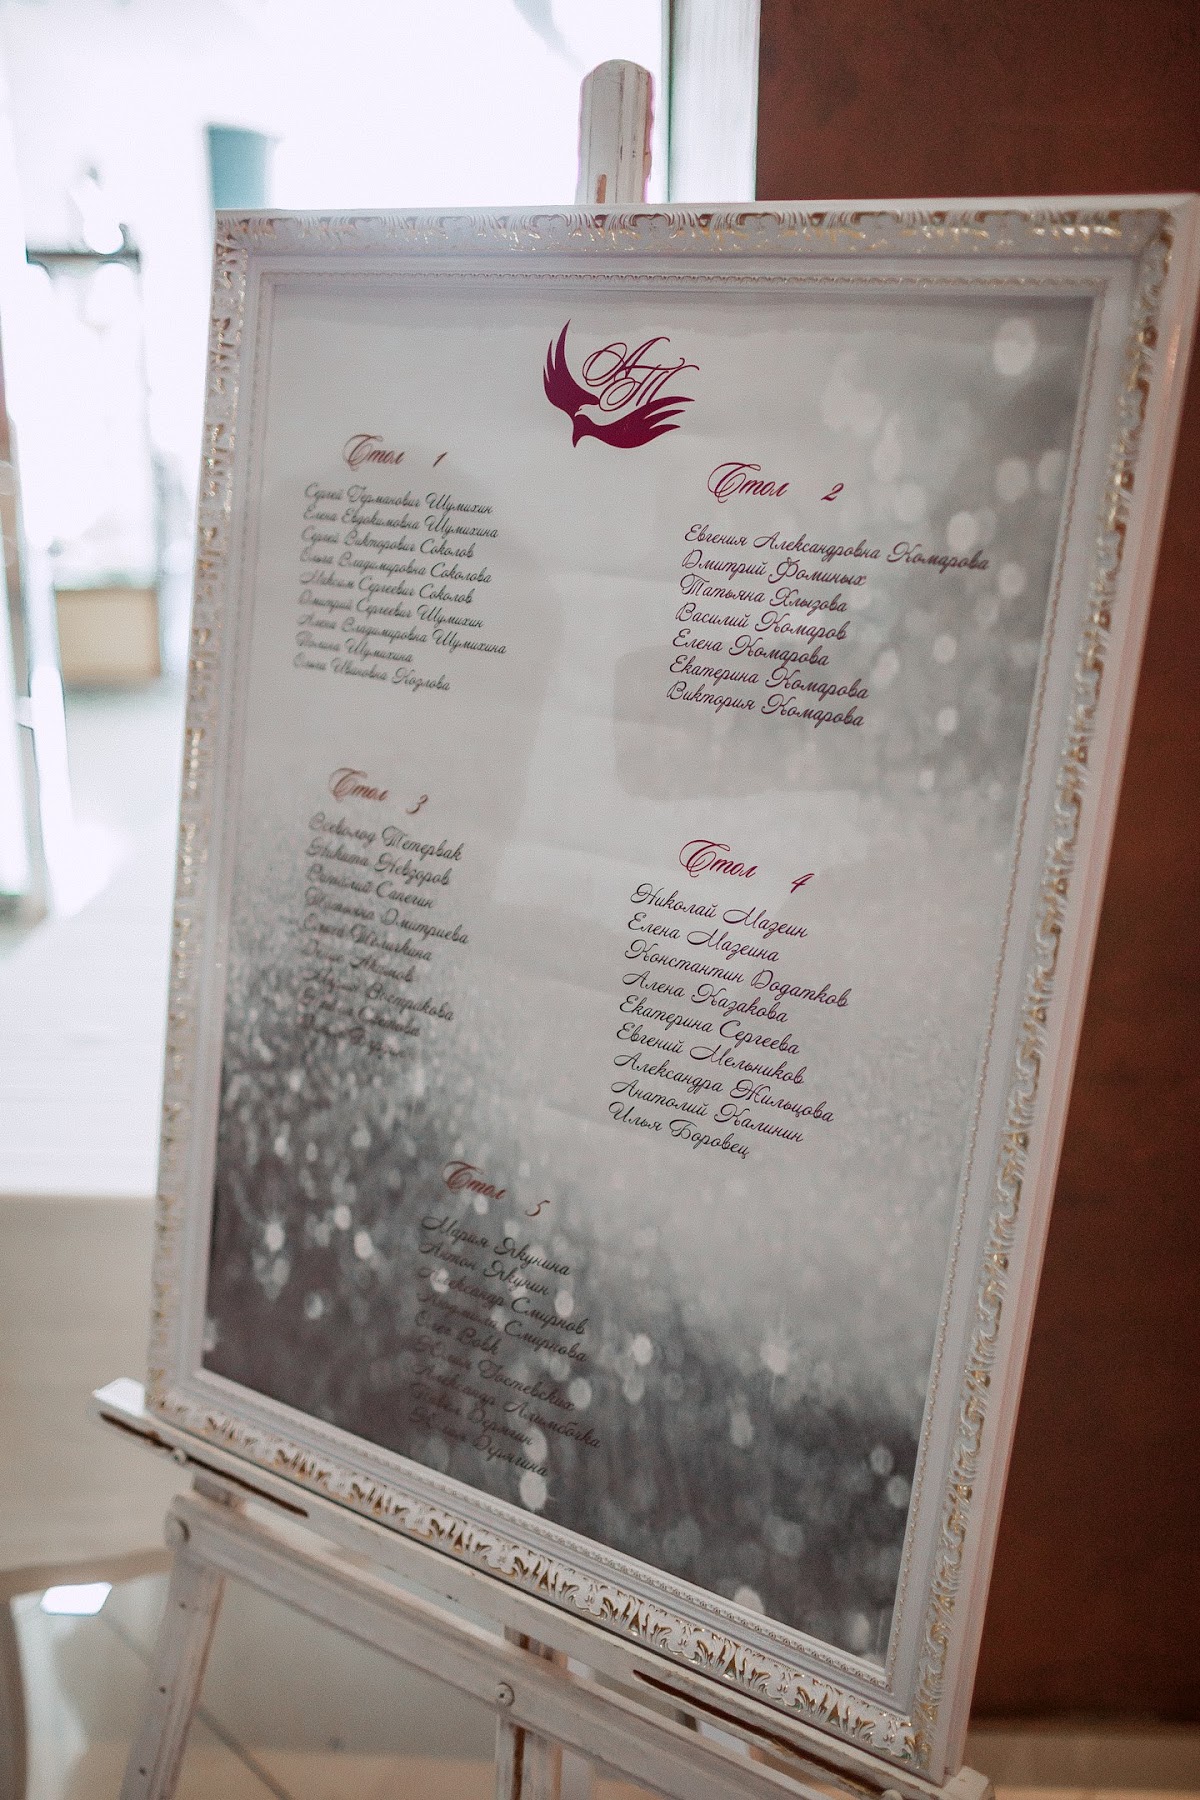 АТ
Стол 1
Сергей Германович Шумихин
Елена Евдокимовна Шумихина
Сергей Викторович Соколов
Ольга Владимировна Соколова
Максим Сергеевич Соколов
Дмитрий Сергеевич Шумихин
Алена Владимировна Шумихина
Полина Шумихина
Ольга Ивановна Козлова
Стол 2
Евгения Александровна Комарова
Дмитрий Фоминых
Татьяна Хлызова
Василий Комаров
Елена Комарова
Екатерина Комарова
Виктория Комарова
Стол 3
Всеволод Тетервак
Никита Невзоров
Виталий Сапегин
Татьяна Дмитриева
Ольга
Акимов
Вострикова
Стол 4
Николай Мазеин
Елена Мазеина
Константин Додатков
Алена Казакова
Екатерина Сергеева
Евгений Мельников
Александра Жильцова
Анатолий Калинин
Илья Боровец
Стол 5
Мария Якунина
Антон Якунин
Александр Смирнов
Людмила Смирнова
Олег Вовк
Юлия Гостевских
Александр
Павел Дерягин
Юлия Дерягина